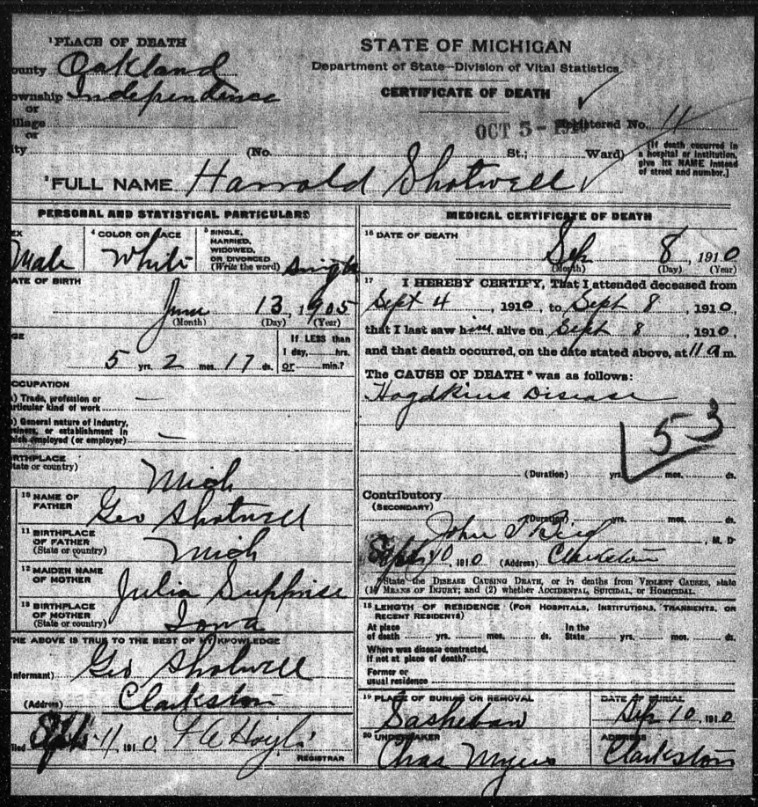 ¹PLACE OF DEATH
STATE OF MICHIGAN
ounty Oakland
Department of State—Division of Vital Statistics
ownship Independence
or
CERTIFICATE OF DEATH
illage
or
OCT 5 - 19
istered No. 11
ity
(No.
St.;
Ward)
(If death occurred in
a hospital or institution,
give its NAME instead
of street and number.)
²FULL NAME Harrald Shotwell
PERSONAL AND STATISTICAL PARTICULARS
EX
Male
⁴ COLOR OR RACE
White
⁵ SINGLE,
MARRIED,
WIDOWED,
OR DIVORCED
(Write the word) Single
ATE OF BIRTH
June 13, 1905
(Month) (Day) (Year)
GE
If LESS than
1 day, hrs.
or min.?
5 yrs. 2 mos. 17 ds.
OCCUPATION
) Trade, profession or
articular kind of work —
) General nature of industry,
siness, or establishment in
hich employed (or employer) —
IRTHPLACE
State or country)
Mich
¹⁰ NAME OF
FATHER
Geo Shotwell
¹¹ BIRTHPLACE
OF FATHER
(State or country)
Mich
¹² MAIDEN NAME
OF MOTHER
Julia
¹³ BIRTHPLACE
OF MOTHER
(State or country)
Iowa
HE ABOVE IS TRUE TO THE BEST OF MY KNOWLEDGE
nformant) Geo Shotwell
(Address) Clarkston
iled Sept 11 1910
REGISTRAR
MEDICAL CERTIFICATE OF DEATH
¹⁶ DATE OF DEATH
Sep 8, 1910
(Month) (Day) (Year)
¹⁷ I HEREBY CERTIFY, That I attended deceased from
Sept 4, 1910, to Sept 8, 1910,
that I last saw him alive on Sept 8, 1910,
and that death occurred, on the date stated above, at 11 a m.
The CAUSE OF DEATH* was as follows:
Hogdkins Disease
53
(Duration) yrs. mos. ds.
Contributory
(SECONDARY)
(Duration) yrs. mos. ds.
John T Bird, M. D
Sept 10 1910 (Address) Clarkston
*State the DISEASE CAUSING DEATH, or in deaths from VIOLENT CAUSES, state
(1) MEANS OF INJURY; and (2) whether ACCIDENTAL, SUICIDAL, or HOMICIDAL.
¹⁸ LENGTH OF RESIDENCE (FOR HOSPITALS, INSTITUTIONS, TRANSIENTS, OR
RECENT RESIDENTS)
At place
of death yrs. mos. ds.
In the
State yrs. mos. ds.
Where was disease contracted,
if not at place of death?
Former or
usual residence
¹⁹ PLACE OF BURIAL OR REMOVAL
Sashebaw
DATE OF BURIAL
Sep 10, 1910
²⁰ UNDERTAKER
Chas Myers
ADDRESS
Clarkston